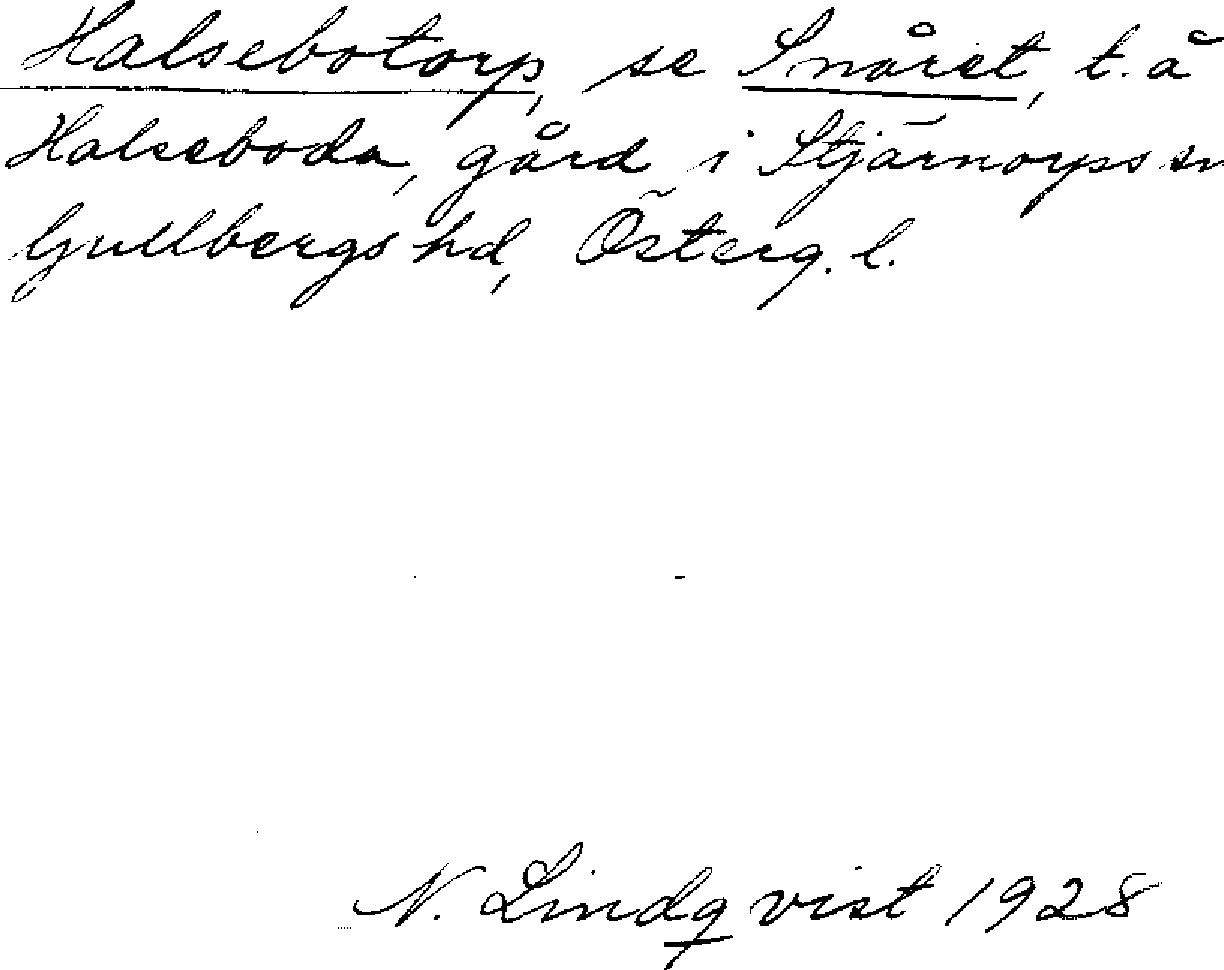 Halsebotorp, se Snåret, t. å
Halseboda, gård i Stjärnorps sn
Gullbergs hd, Österg. l.
N. Lindqvist 1928